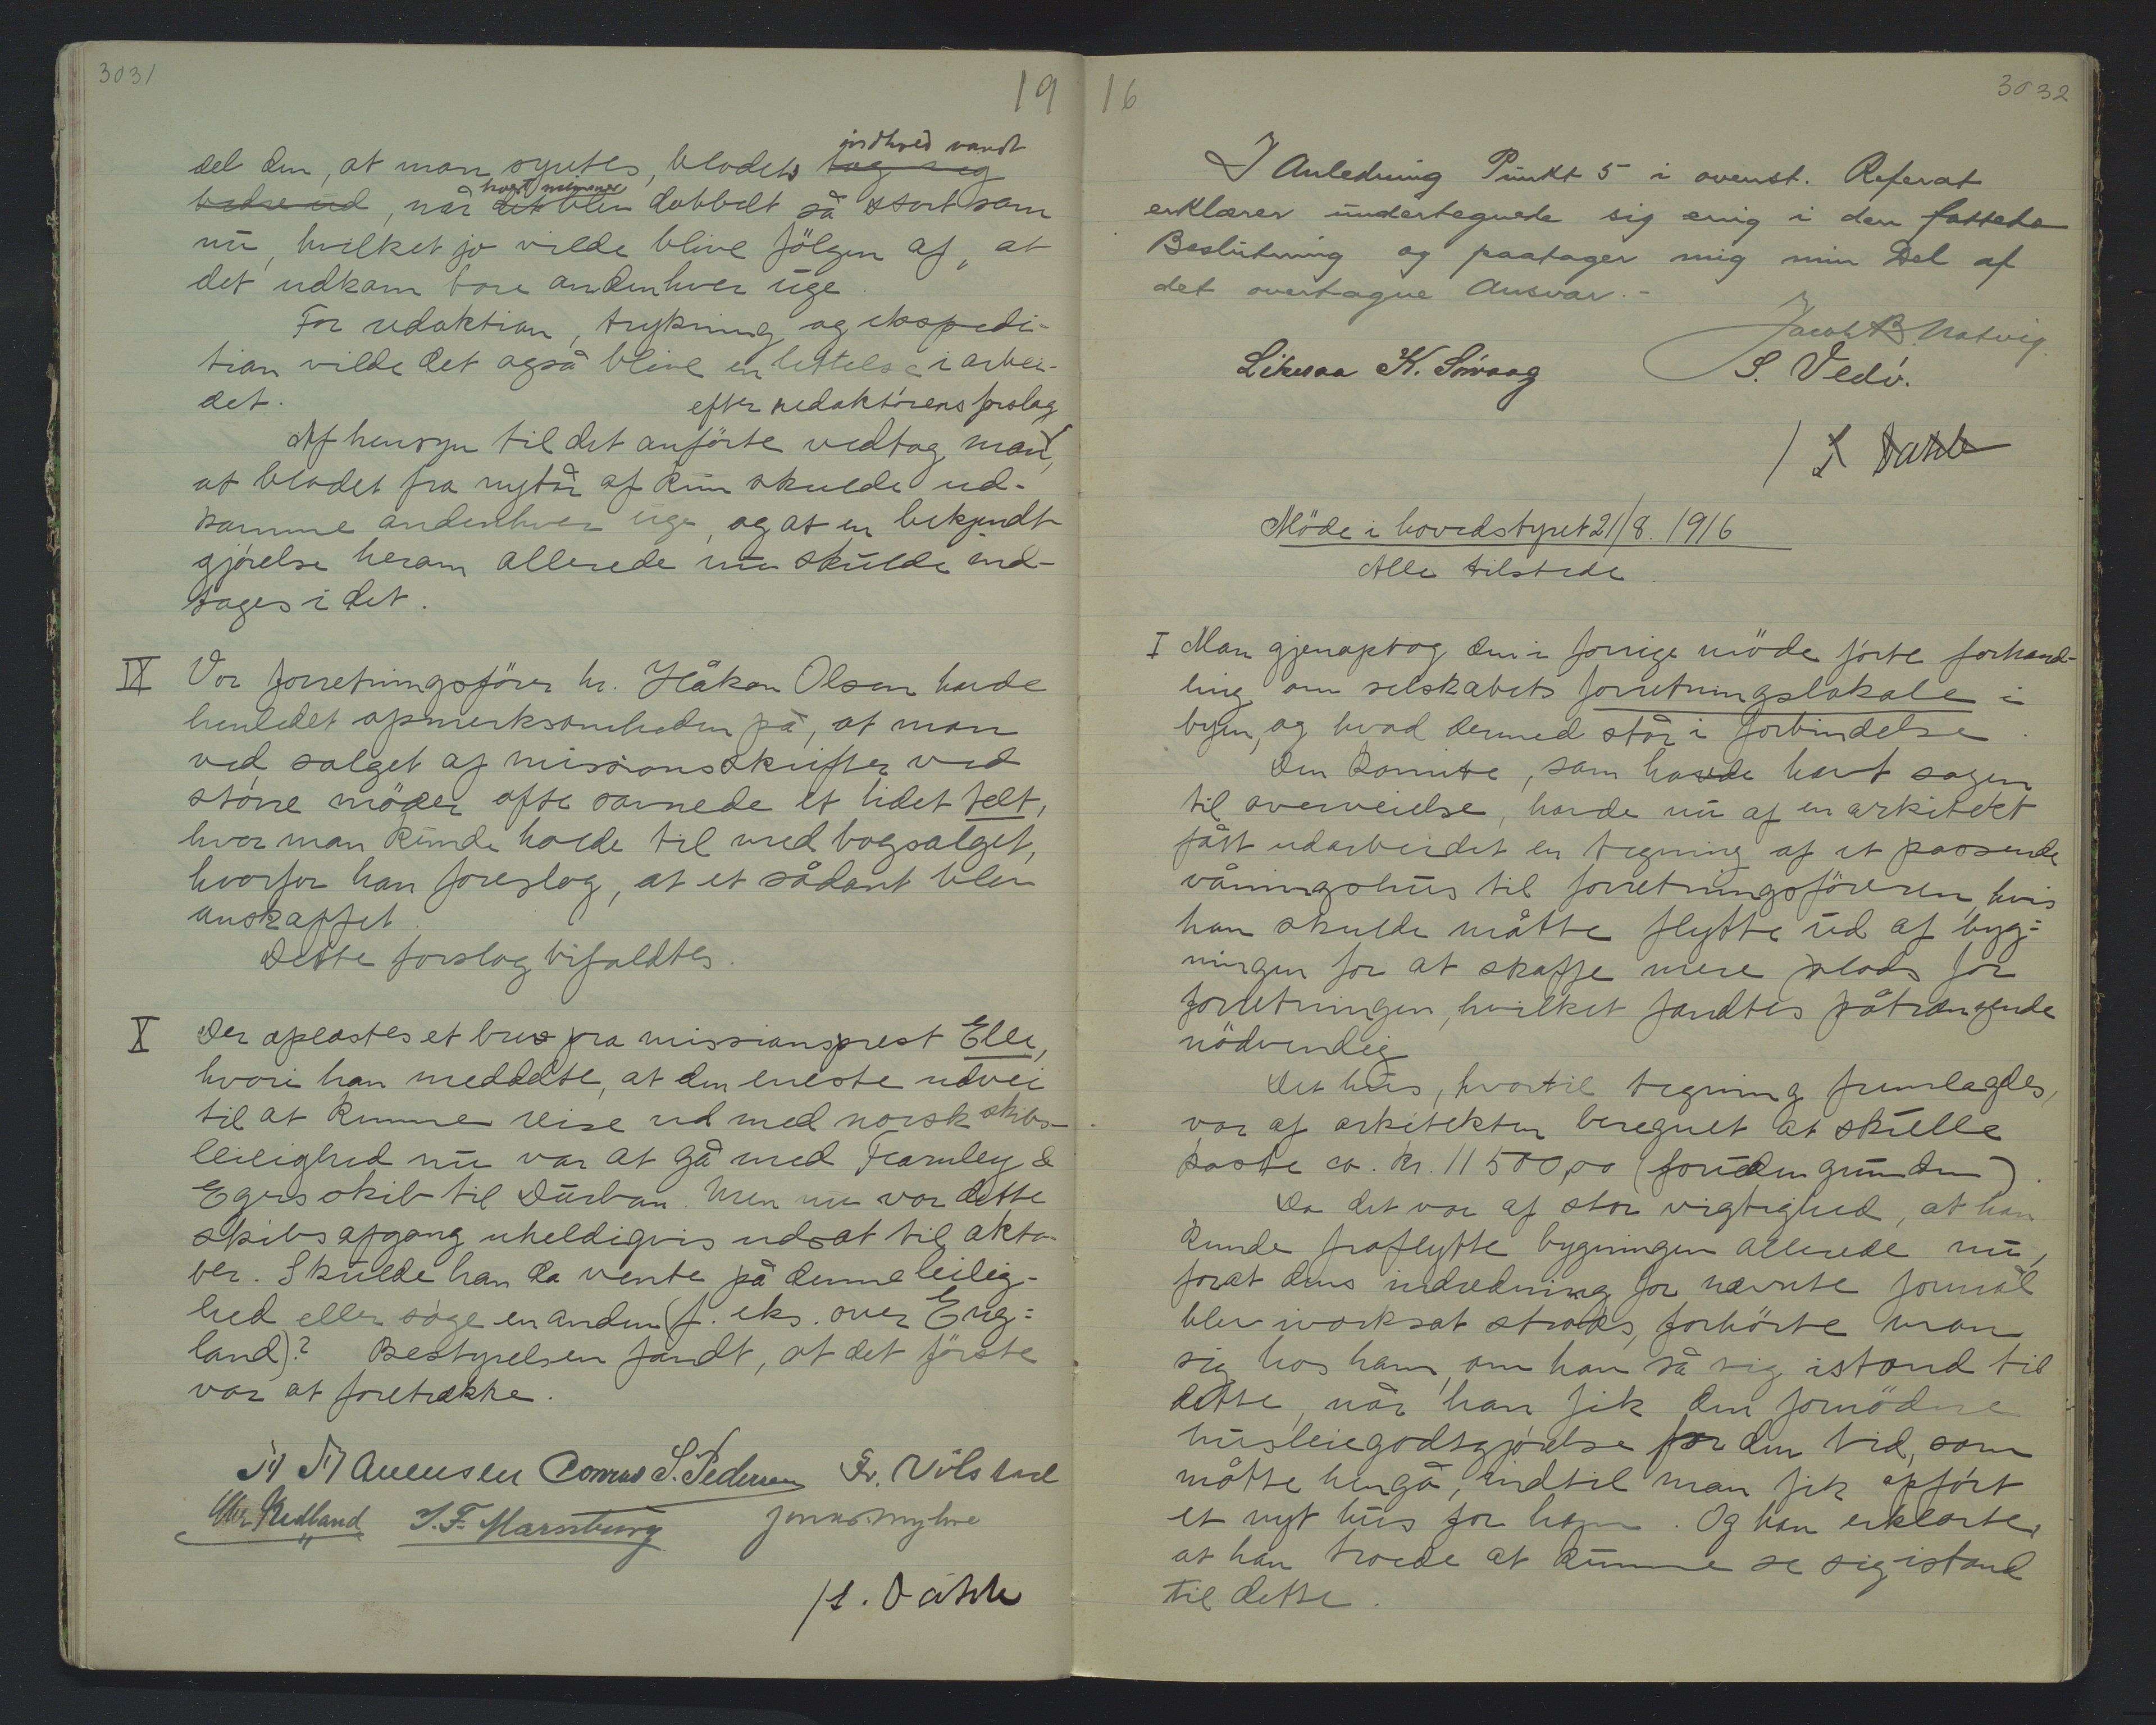 3031
19
del den, at man syntes, bladets indhold vandt
tog sig
bedre ud, når hvert nummer det blev dobbelt så stort som
nu, hvilket jo vilde blive fölgen af, at
det udkom bare andenhver uge.
For redaktion, trykning og ekspedi-
tion vilde det også blive en lettelse i arbei-
det.
efter redaktörens forslag
Af hensyn til det anförte vedtog man,
at bladet fra nytår af kun skulde ud-
komme andenhver uge, og at en bekjendt-
gjörelse herom allerede nu skulde ind-
tages i det.
IX Vor forretningsförer hr. Håkon Olsen havde
henledet opmerksomheden på, at man
ved salget af missionsskrifter ved
större möder ofte savnede et lidet telt,
hvor man kunde holde til med bogsalget,
hvorfor han foreslog, at et sådant blev
anskaffet.
Dette forslag bifaldtes.
X Der oplæstes et brev fra missionsprest Elle,
hvori han meddelte, at den eneste udvei
til at kunne reise ud med norsk skibs-
leilighed nu var at gå med Fearnley &
Egers skib til Durban. Men nu var dette
skibs afgang uheldigvis udsat til okto-
ber. Skulde han da vente på denne leilig-
hed eller söge en anden (f. eks. over Eng-
land)? Bestyrelsen fandt, at det förste
var at foretrække.
Conrad S. Pedersen Fr. Völstad
Chr. Redland J. F. Marnburg Jonas Myhre
/ L. Dahle
16
3032
I Anledning Punkt 5 i ovenst. Referat
erklærer undertegnede sig enig i den fattede
Beslutning og paatager mig min Del af
det overtagne Ansvar.-
Jacob B. Natvig.
Likesaa K. Sövaag S. Vedö.
/ L Dahle
Möde i hovedstyret 21/8. 1916
Alle tilstede.
I Man gjenoptog den i forrige möde förte forhand-
ling om selskabets forretningslokale i
byen, og hvad dermed står i forbindelse.
Den komite, som havde havt sagen
til overveielse, havde nu af en arkitekt
fått udarbeidet en tegning af et passende
våningshus til forretningsföreren, hvis
han skulde måtte flytte ud af byg-
ningen for at skaffe mere plads for
forretningen, hvilket fandtes påtrængende
nödvendig.
Det hus, hvortil tegning fremlagdes,
var af arkitekten beregnet at skulle
koste ca. kr. 11500,00 (foruden grunden).
Da det var af stor vigtighed, at han
kunde fraflytte bygningen allerede nu,
forat dens indredning for nævnte formål
blev iverksat straks, forhörte man
sig hos ham, om han så sig istand til
dette, når han fik den fornödne
husleiegodtgjörelse for den tid, som
måtte hengå, indtil man fik opfört
et nyt hus for ham. Og han erklærte,
at han troede at kunne se sig istand
til dette.